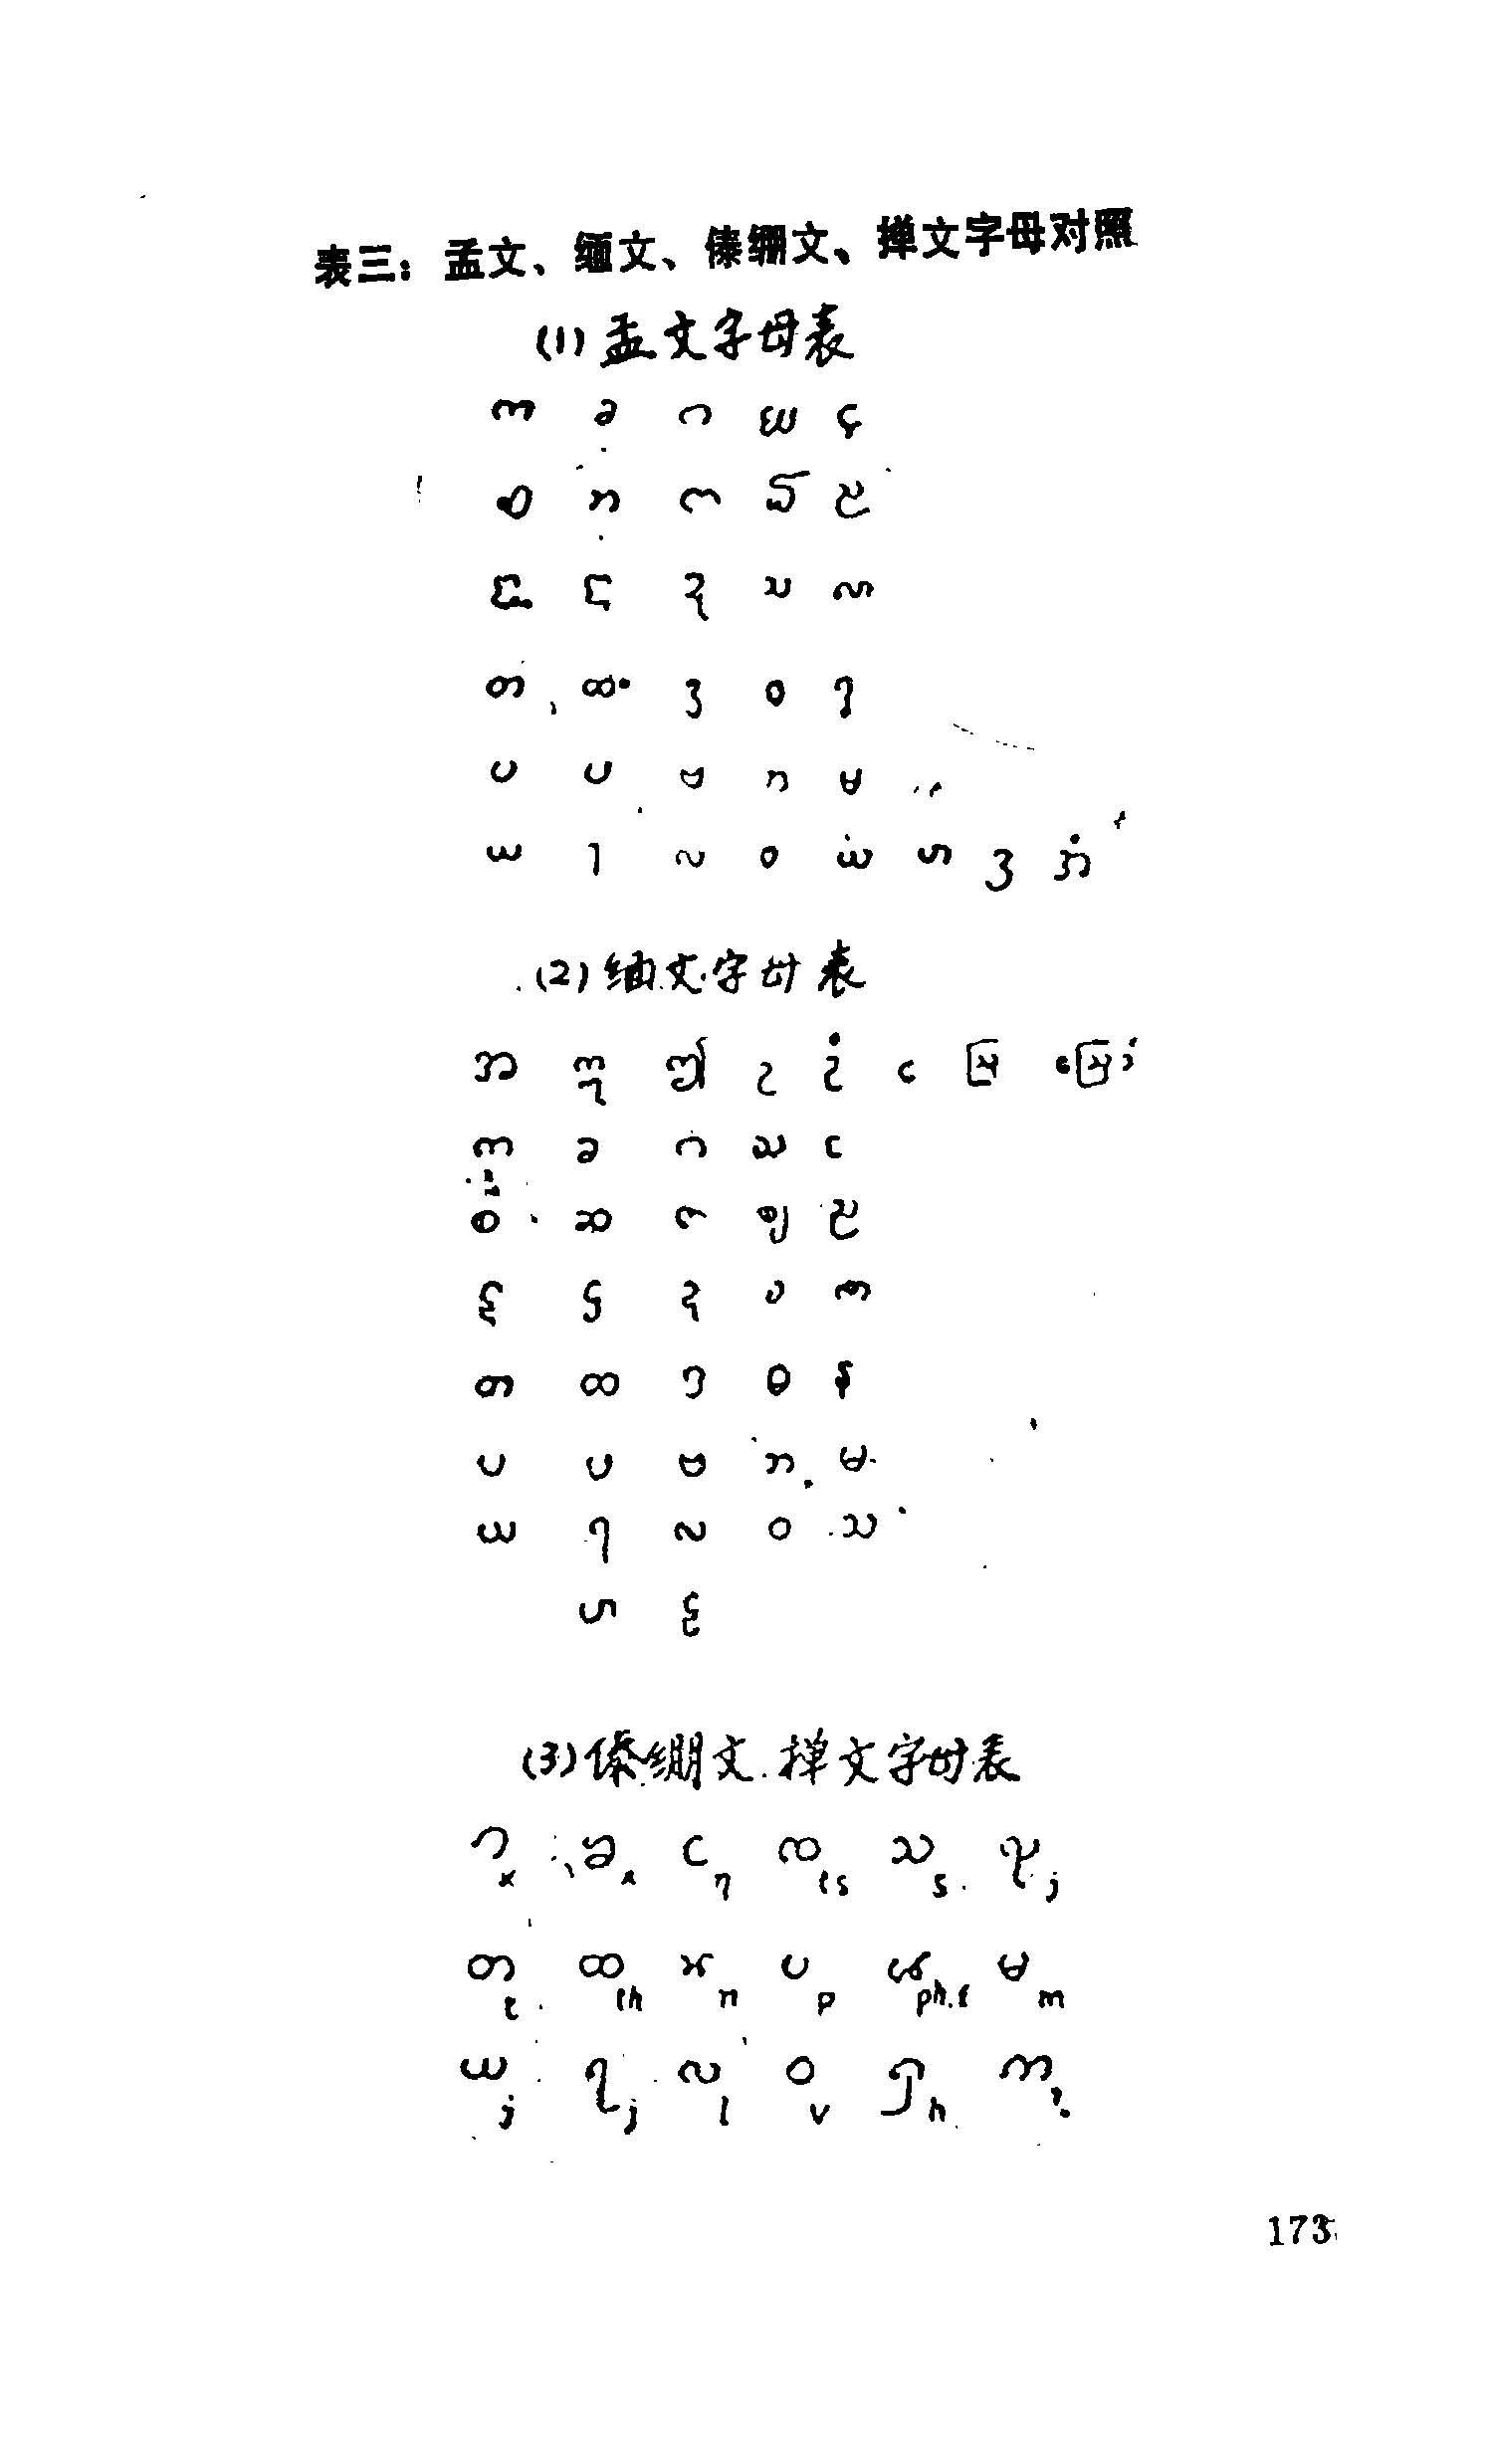 表三：孟文、缅文、傣绷文、掸文字母对照
(1)孟文字母表
က ခ ဂ ဃ င
စ ဆ ဇ ၛ ည
ဋ ဌ ဍ ဎ ဏ
တ ထ ဒ ဓ န
ပ ဖ ဗ ဘ မ
ယ ရ လ ဝ သ ဟ ဠ အံ
(2)缅文字母表
အ ဣ ဤ ဥ ဦ ဩ ဪ
က ခ ဂ ဃ င
စ ဆ ဇ ဈ ည
ဋ ဌ ဍ ဎ ဏ
တ ထ ဒ ဓ န
ပ ဖ ဗ ဘ မ
ယ ရ လ ဝ သ
ဟ ဠ
(3)傣绷文.掸文字母表
ၵ ၶ င ၸ သ ၺ
ŋ ts s j
တ ထ ၼ ပ ၽ မ
t th n p ph.f m
ယ ရ လ ဝ ႁ ဢ
j j l v h ʔ
173